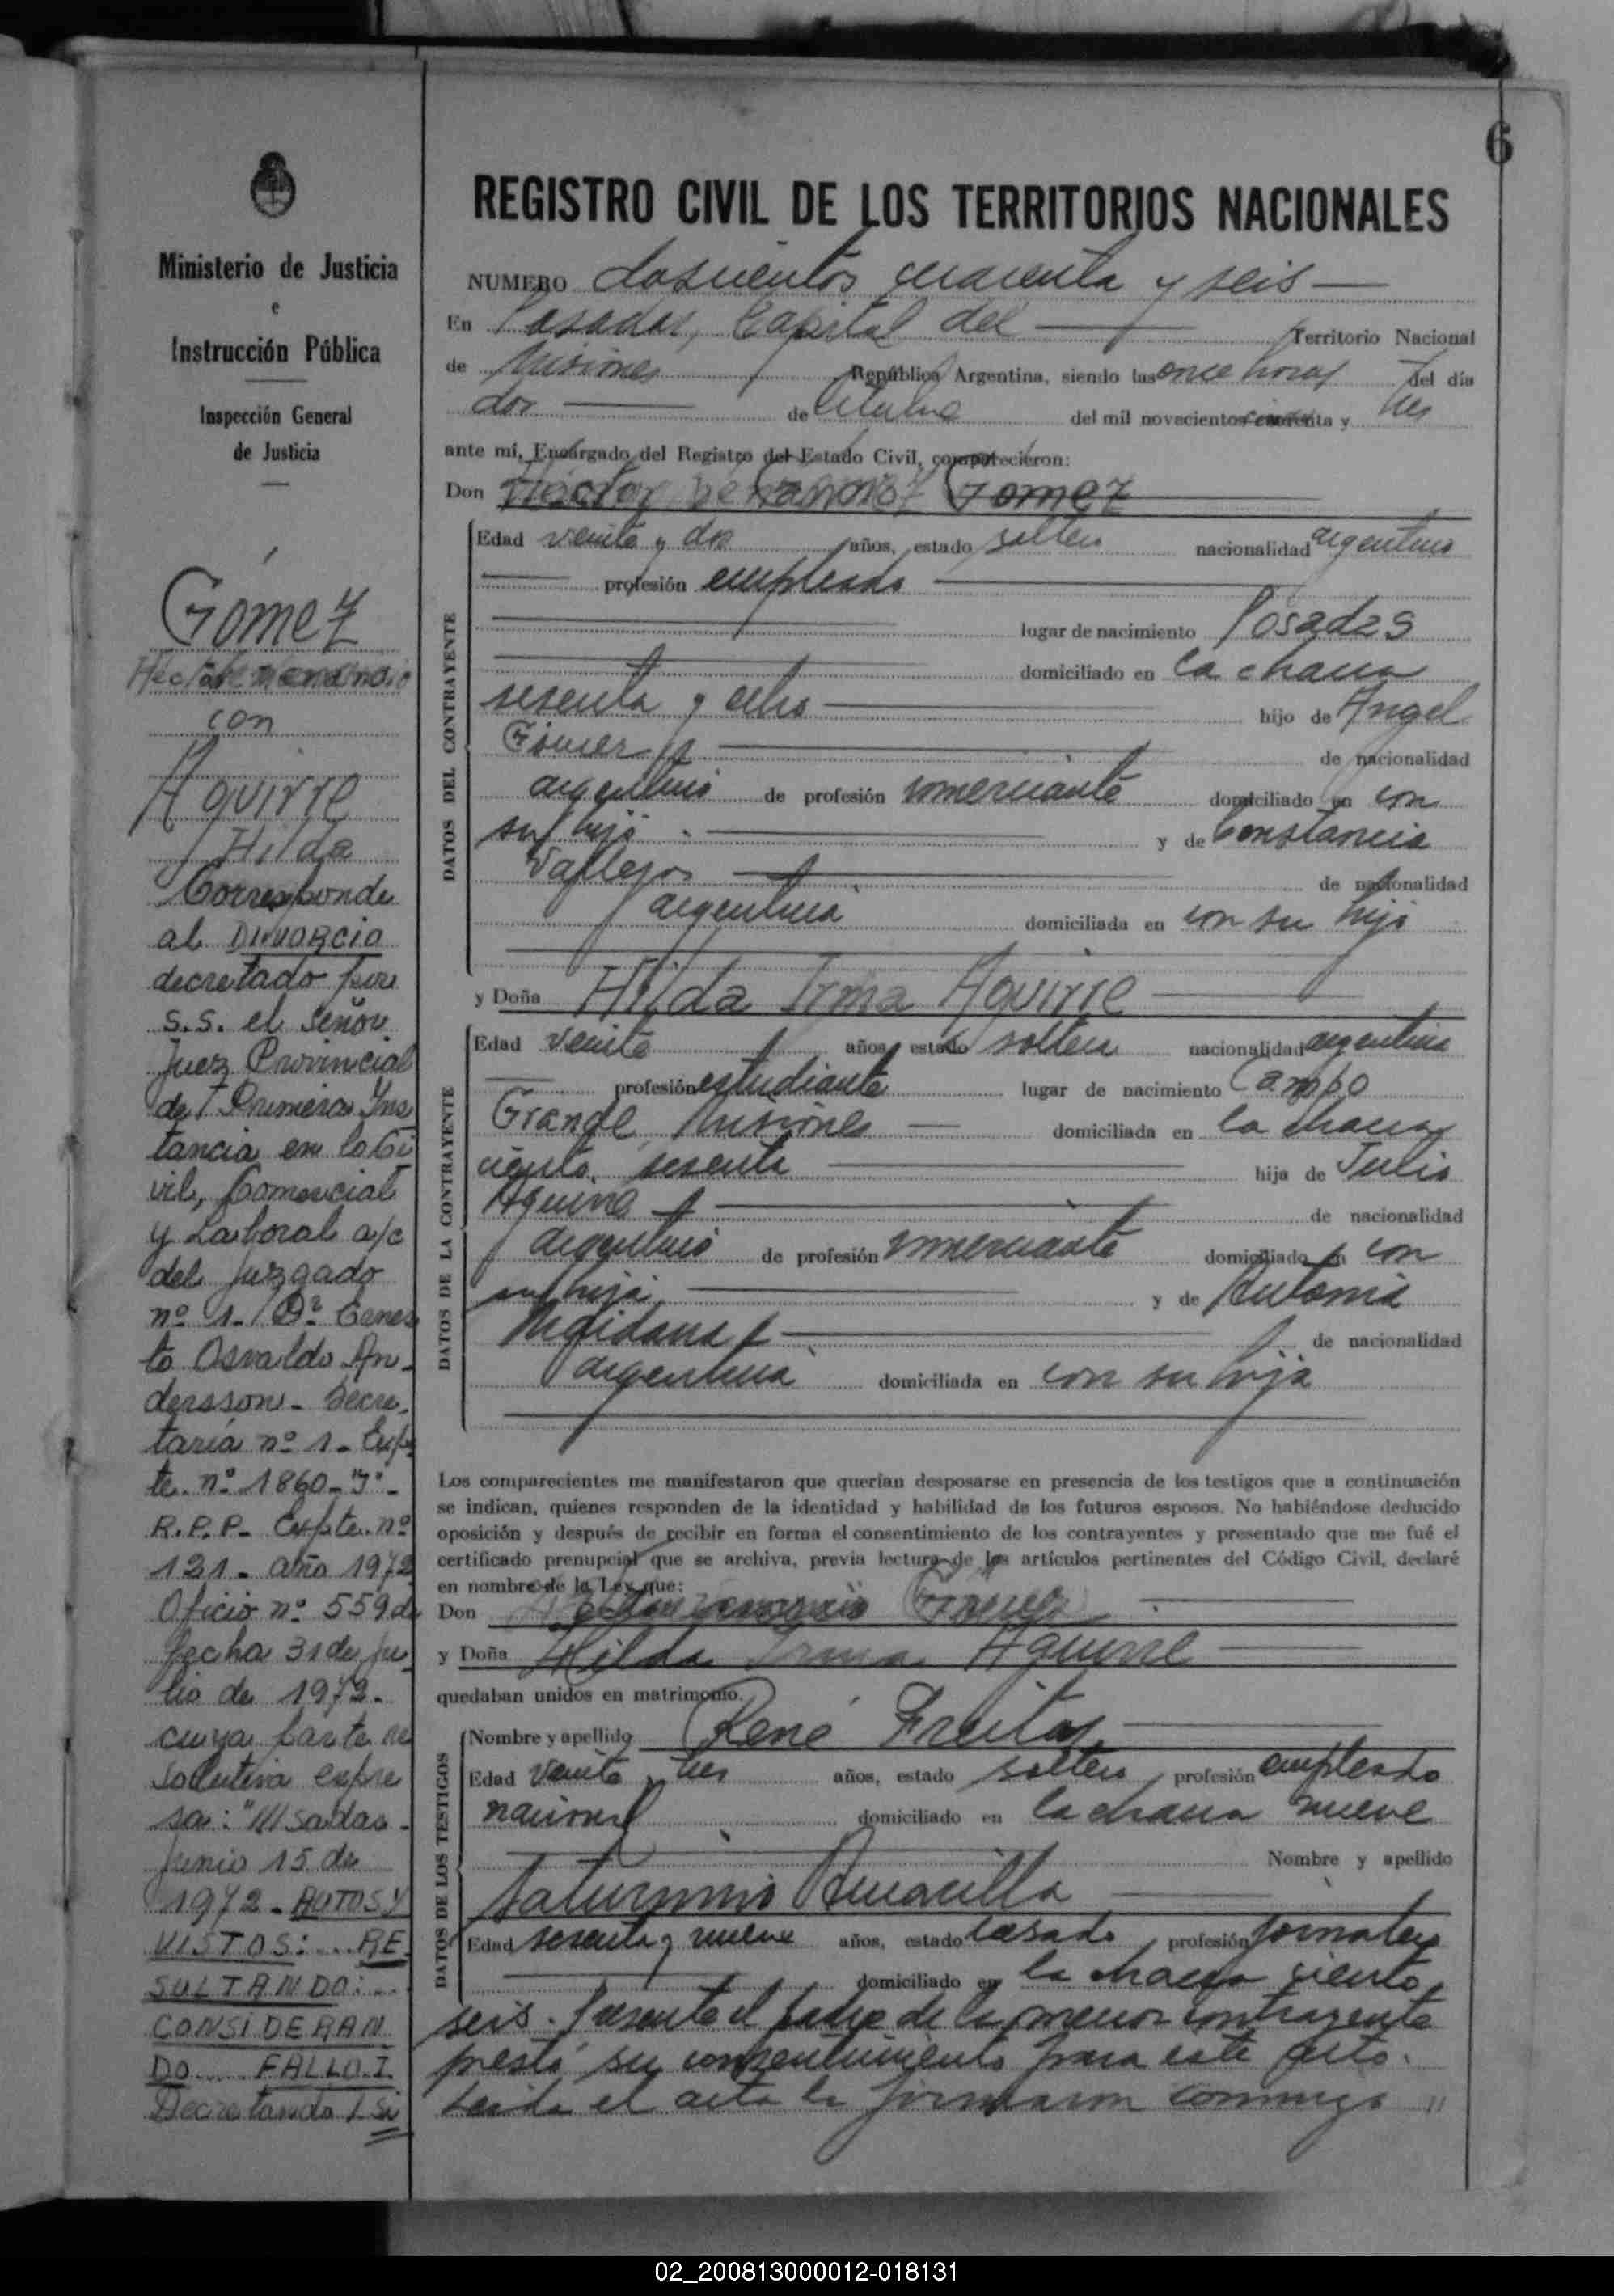 6
Ministerio de Justicia
e
Instrucción Pública
Inspección General
de Justicia
Gómez
Héctor Venancio
con
Aguirre
Hilda
Corresponde
al DIVORCIO
decretado por
S.S. el Señor
Juez Provincial
de Primera Ins
tancia en lo Ci
vil, Comercial
y Laboral a/c
del Juzgado
nº 1-
to Osvaldo An-
dersson- Secre-
taría nº 1- Exp
te. nº 1860-"J"-
R.P.P- Expte. nº
121- año 1972
Oficio nº 559 de
fecha 31 de ju
lio de 1972-
cuya parte re
solutiva expre
sa: "Posadas-
Junio 15 de
1972- AUTOS Y
VISTOS:... RE
SULTANDO:...
CONSIDERAN
DO.... FALLO:I.
Decretando
REGISTRO CIVIL DE LOS TERRITORIOS NACIONALES
NUMERO doscientos cuarenta y seis
En Posadas, Capital del Territorio Nacional
de Misiones República Argentina, siendo las once horas del día
dos de Octubre del mil novecientos cuarenta y tres
ante mí, Encargado del Registro del Estado Civil, comparecieron:
Don Héctor Venancio Gomez
DATOS DEL CONTRAYENTE
Edad veinte y dos años, estado soltero nacionalidad argentino
profesión empleado
lugar de nacimiento Posadas
domiciliado en la chacra
sesenta y ocho hijo de Angel
Gómez de nacionalidad
argentino de profesión comerciante domiciliado en con
su hijo y de Constancia
Vallejos de nacionalidad
argentina domiciliada en con su hijo
y Doña Hilda Irma Aguirre
DATOS DE LA CONTRAYENTE
Edad veinte años, estado soltera nacionalidad argentina
profesión estudiante lugar de nacimiento Campo
Grande Misiones domiciliada en la chacra
ciento sesenta hija de Julio
Aguirre de nacionalidad
argentino de profesión comerciante domiciliado en con
su hija y de Antonia
de nacionalidad
argentina domiciliada en con su hija
Los comparecientes me manifestaron que querían desposarse en presencia de los testigos que a continuación
se indican, quienes responden de la identidad y habilidad de los futuros esposos. No habiéndose deducido
oposición y después de recibir en forma el consentimiento de los contrayentes y presentado que me fué el
certificado prenupcial que se archiva, previa lectura de los artículos pertinentes del Código Civil, declaré
en nombre de la Ley que:
Don Héctor Venancio Gómez
y Doña Hilda Irma Aguirre
quedaban unidos en matrimonio.
DATOS DE LOS TESTIGOS
Nombre y apellido René Freitas
Edad veinte y tres años, estado soltero profesión empleado
nacional domiciliado en la chacra nueve
Nombre y apellido
Saturnino Amarilla
Edad sesenta y nueve años, estado casado profesión jornalero
domiciliado en la chacra ciento
seis. Presente el padre de la menor contrayente
prestó su consentimiento para este acto.
Leída el acta la firmaron conmigo "
02_200813000012-018131